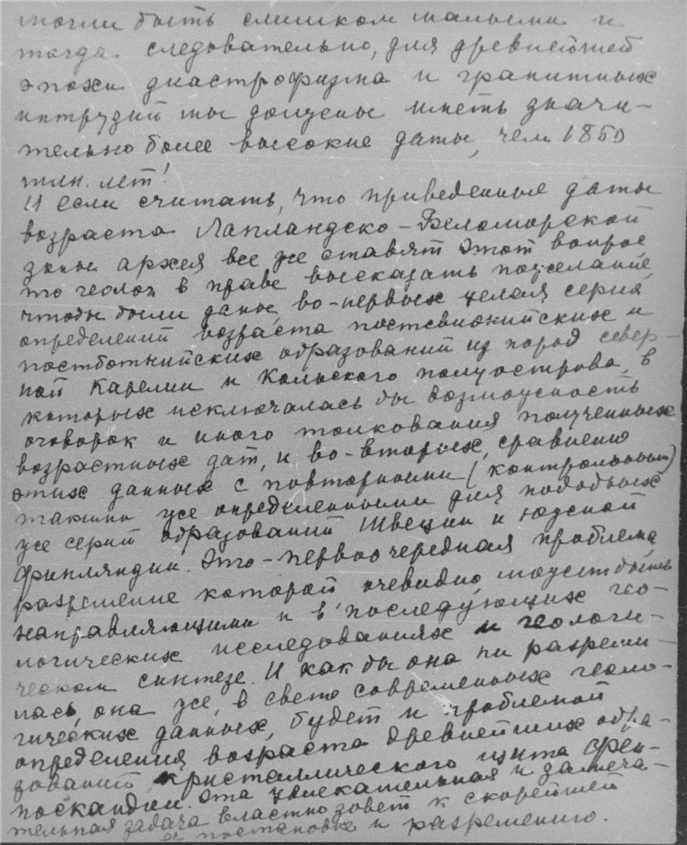 могли быть слишком малыми и
тогда следовательно, для древнейшей
эпохи диастрофизма и гранитных
интрузий мы должны иметь значи-
тельно более высокие даты, чем 1850
млн. лет!
И если считать, что приведенные даты
возраста Лапландско-Беломорской
зоны архея все же ставят этот вопрос
то геолог в праве высказать пожелание,
чтобы были даны, во-первых целая серия
определений возраста постсвионийских и
постботнийских образований из пород север-
ной Карелии и Кольского полуострова, в
которых исключалась бы возможность
оговорок и иного толкования полученных
возрастных дат, и во-вторых, сравнено
этих данных с повторными (контрольными)
такими же определенными для подобных
же серий образований Швеции и южной
Финляндии. Это - первоочередная проблема
разрешение которой очевидно, может быть
направляющими и в последующих гео-
логических исследованиях и геологи-
ческом синтезе. И как бы она ни разреши-
лась, она же, в свете современных геоло-
гических данных, будет и проблемой
определения возраста древнейших обра-
зований, кристаллического щита Фен-
носкандии. Эта увлекательная и замеча-
тельная задача властно зовет к скорейшей
ее постановке и разрешению.